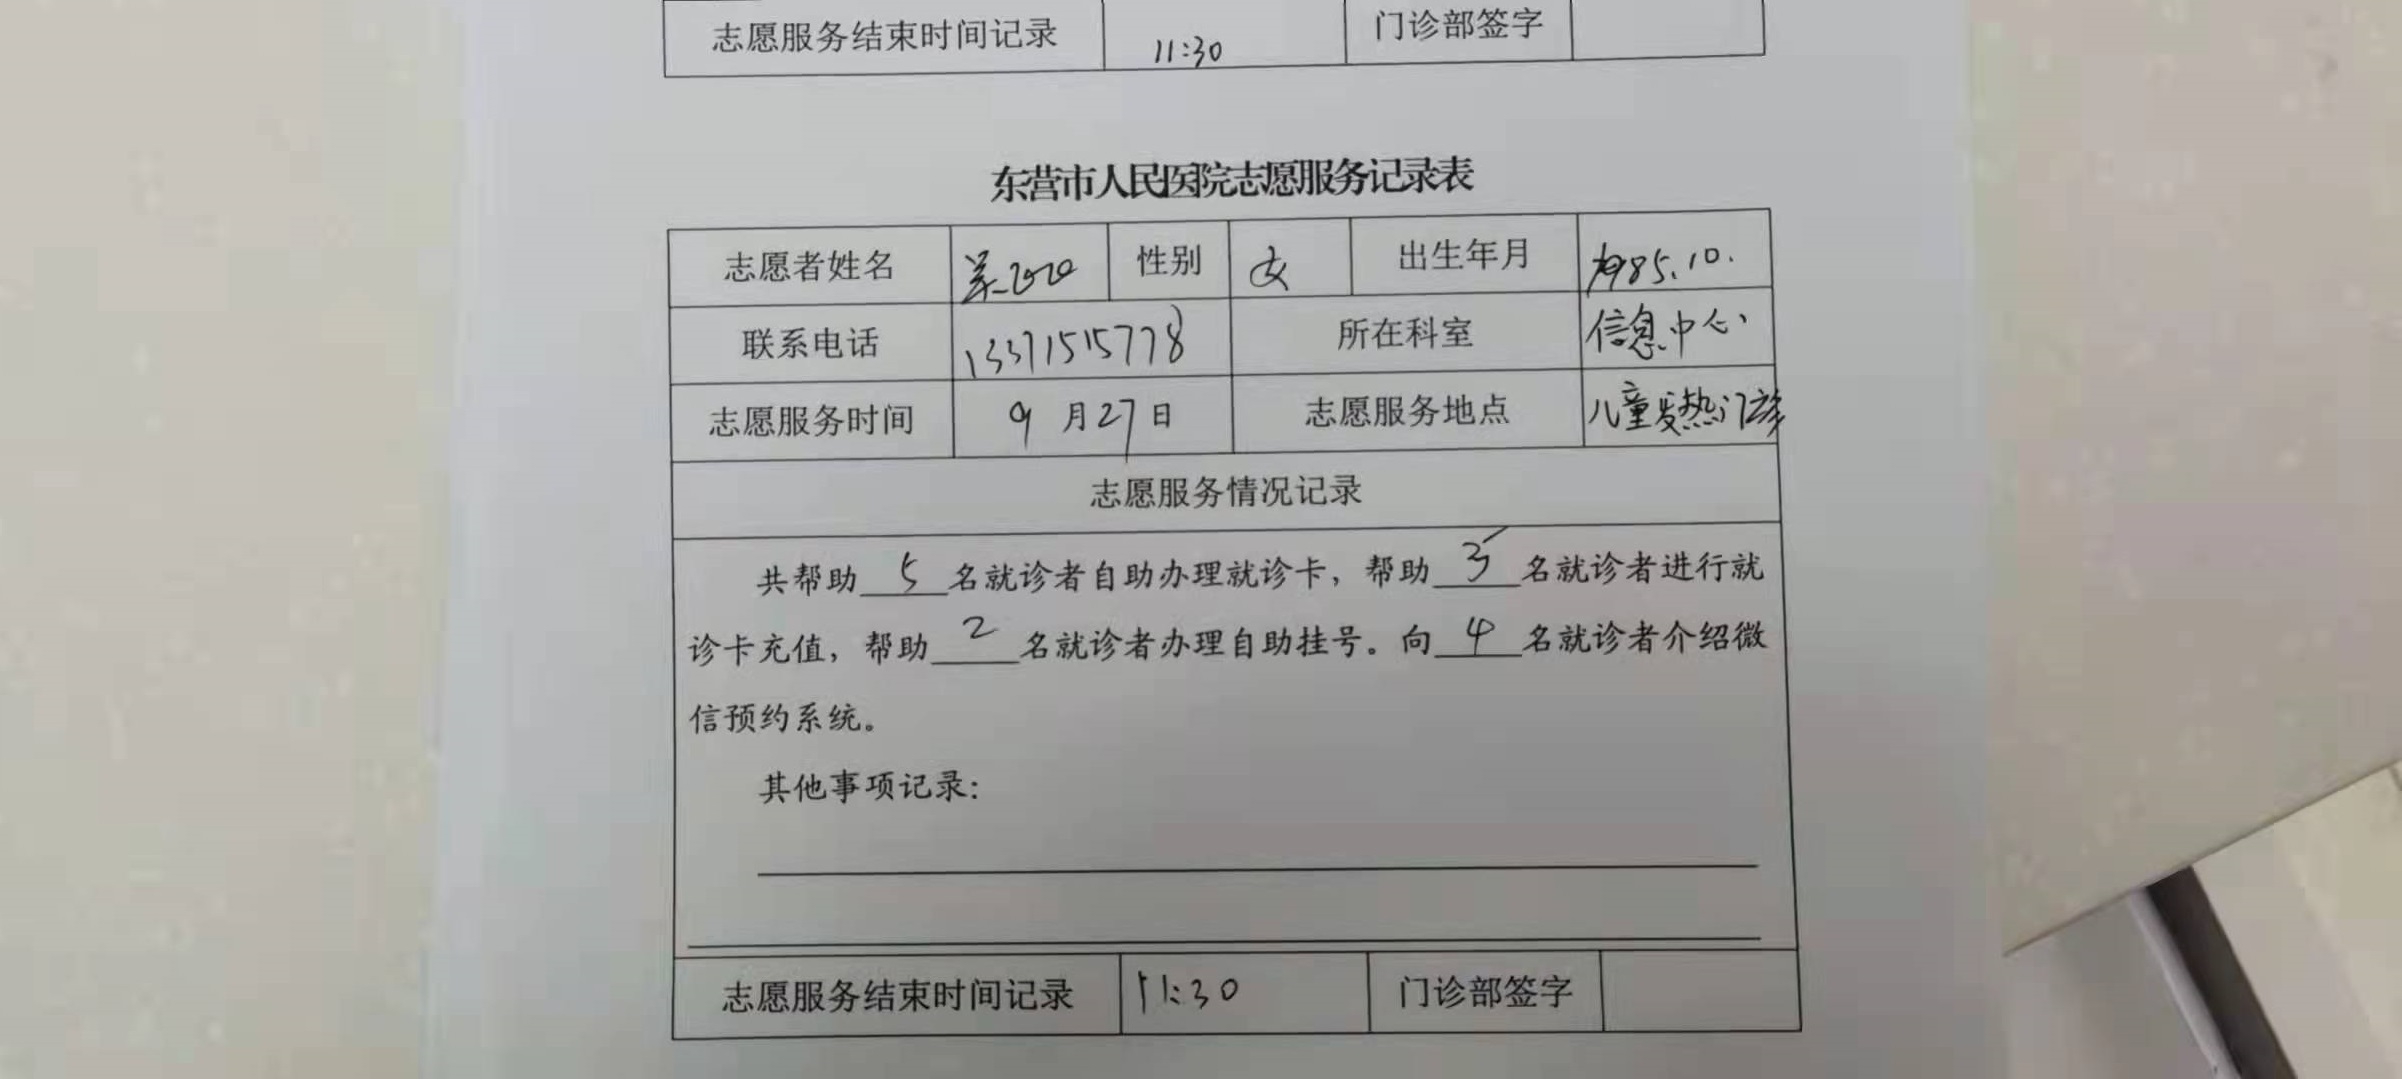 志愿服务结束时间记录 11:30 门诊部签字
东营市人民医院志愿服务记录表
志愿者姓名 性别 女 出生年月 1985.10.
联系电话 13371515778 所在科室 信息中心
志愿服务时间 9月27日 志愿服务地点 儿童发热门诊
志愿服务情况记录
共帮助5名就诊者自助办理就诊卡，帮助3名就诊者进行就
诊卡充值，帮助2名就诊者办理自助挂号。向4名就诊者介绍微
信预约系统。
其他事项记录：
志愿服务结束时间记录 11:30 门诊部签字